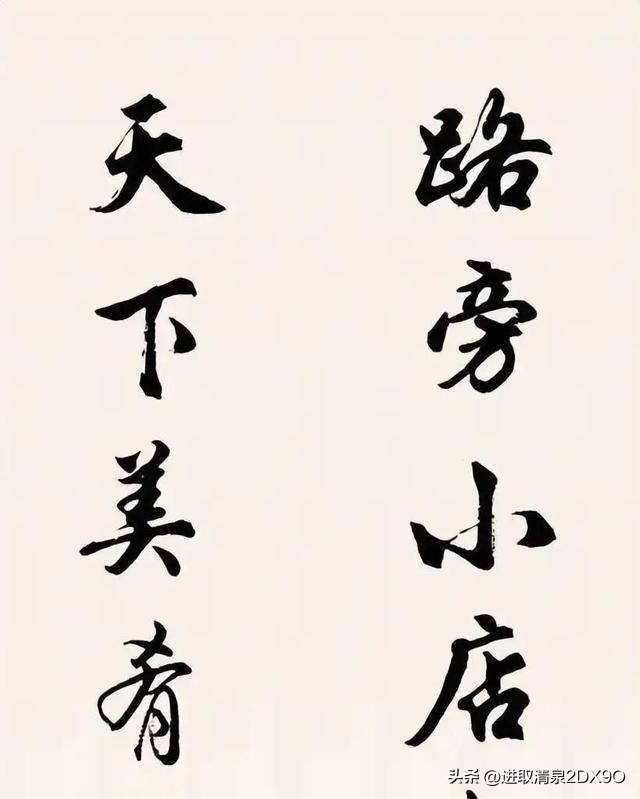 路旁小店
天下美肴
头条 @进取清泉2DX9O